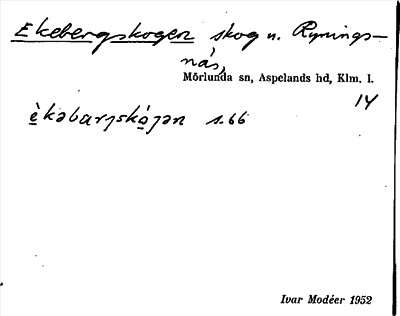 Ekebergskogen skog u. Rynings-
näs,
Mörlunda sn, Aspelands hd, Klm. l.
14
èkəbarjskó̱jən s.66
Ivar Modéer 1952